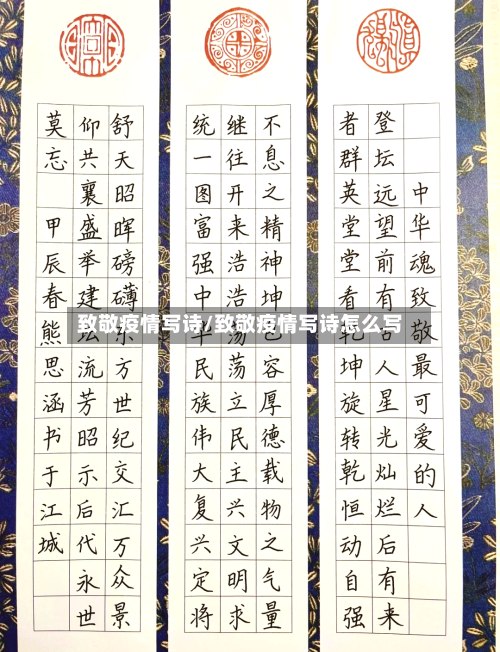 中华魂致敬最可爱的人
登坛远望前有古人星光灿烂后有来
者群英堂堂看乾坤旋转乾恒动自强
不息之精神坤包容厚德载物之气量
继往开来浩浩荡荡立民主兴文明求
统一图富强中华民族伟大复兴定将
舒天昭晖磅礴东方世纪交汇万众景
仰共襄盛举建坛流芳昭示后代永世
莫忘 甲辰春熊思涵书于江城
致敬疫情写诗/致敬疫情写诗怎么写